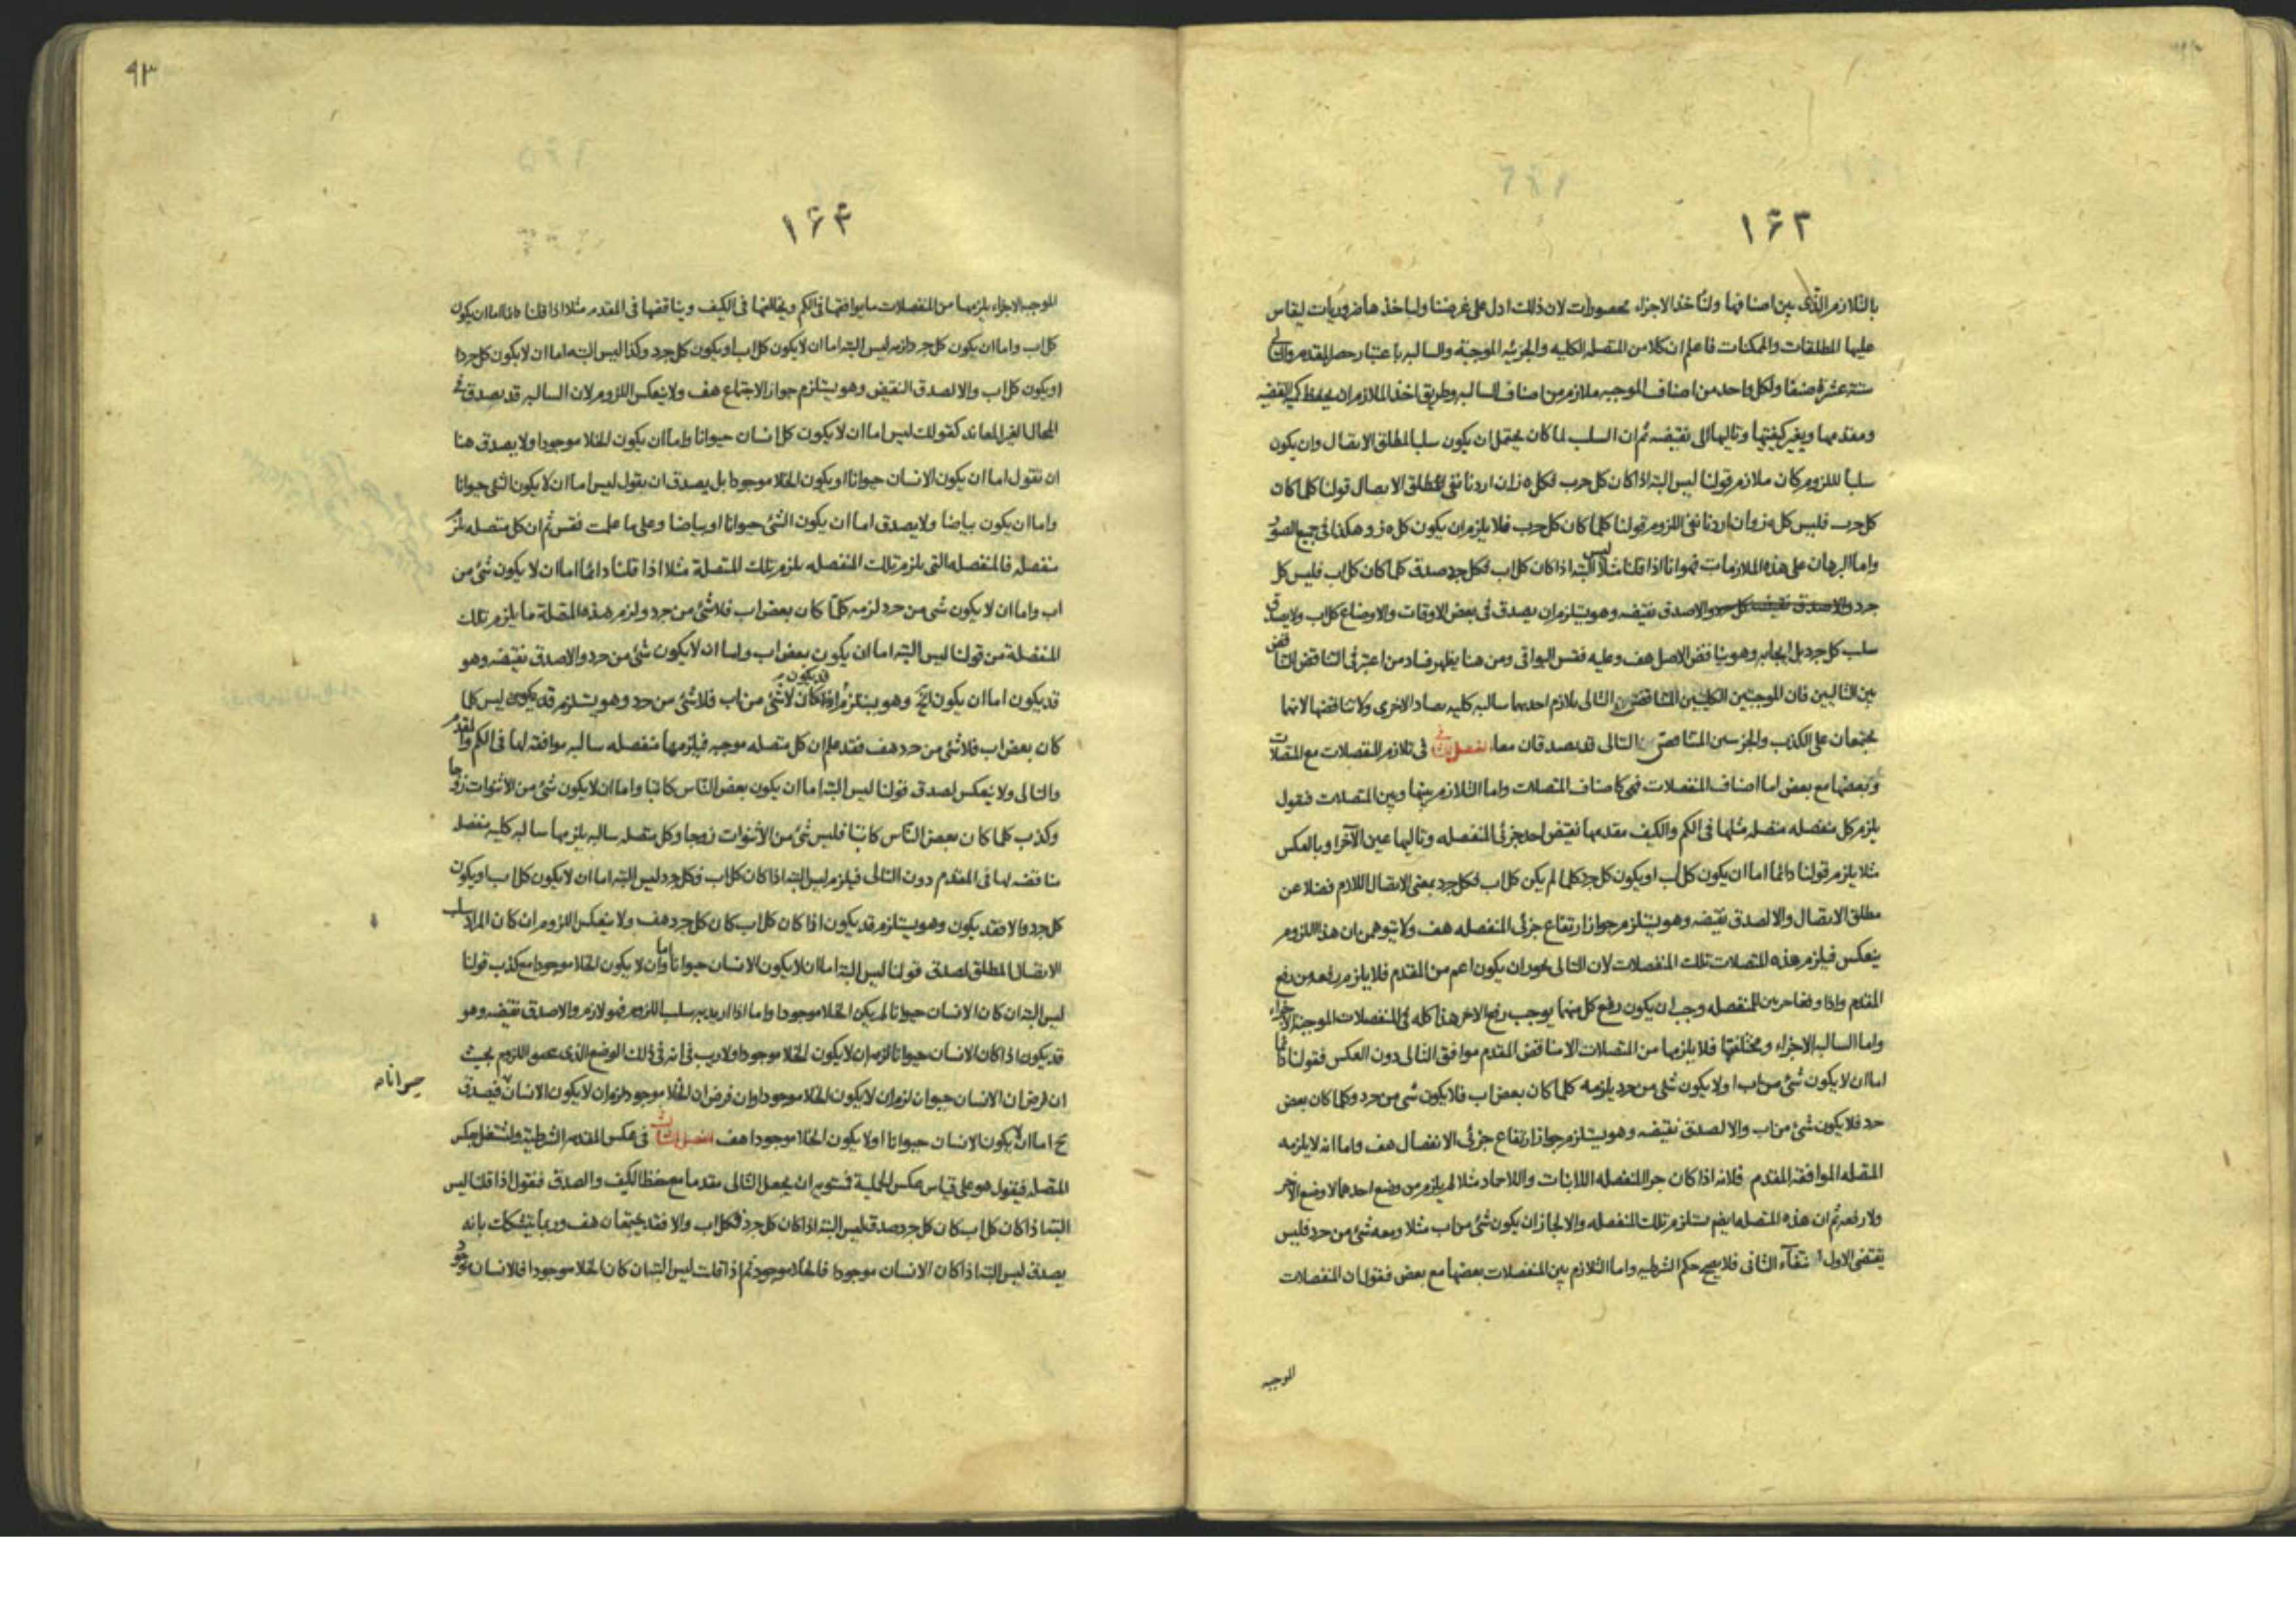 ۱۶۳
بالتلازم الذی بین اصنافها ولناخذ الاجزاء محصورات لان ذلك ادل علی غرضنا ولناخذها ضروریات لیقاس
علیها المطلقات والممکنات فاعلم ان کلا من المتصله الکلیه والجزئیه الموجبة والسالبه باعتبار حصر المقدم والتالی
ستة عشرة صنفا ولکل واحد من اصناف الموجبه ملازم من اصناف السالبه وطریق اخذ الملازم ان یحفظ کمیه القضیه
ومقدمها ویغیر کیفیتها وتالیها الی نقیضه ثم ان السلب لما کان یحتمل ان یکون سلبا لمطلق الاتصال وان یکون
سلبا للزوم کان ملازم قولنا لیس البته اذا کان کل حرب فکل ه ز ان اردنا نفی المطلق الاتصال قولنا کلما کان
کل حرب فلیس کل ه ز وان اردنا نفی اللزوم قولنا کلما کان کل حرب فلا یلزم ان یکون کل ه ز وهکذا فی جمیع الصور
واما البرهان علی هذه الملازمات فهو انا اذا قلنا مثلا لیس البته اذا کان کل اب فکل جد صدق کلما کان کل اب فلیس کل
جرد والاصدق نقیضه وهو یستلزم ان یصدق فی بعض الاوقات والاوضاع کل اب ولا یصدق
سلب کل جرد بل ایجابه وهو یناقض الاصل هف وعلیه فقس البواقی ومن هنا یظهر فساد من اعتبر فی التناقض التناقض
بین التالیین فان الموجبتین الکلیتین المتناقضتی التالی یلازم احدیهما سالبه کلیه یضاد الاخری ولا تناقضها لانهما
یجتمعان علی الکذب والجزئیین المتناقضی التالی قد یصدقان معا الفصل فی تلازم المنفصلات مع المتصلات
وبعضها مع بعض اما اصناف المنفصلات فهی کاصناف المتصلات واما التلازم بینها وبین المتصلات فنقول
یلزم کل منفصله متصله مثلها فی الکم والکیف مقدمها نقیض احد جزئی المنفصله وتالیها عین الآخر او بالعکس
مثلا یلزم قولنا دائما اما ان یکون کل اب او یکون کل جرد کلما لم یکن کل اب فکل جرد بمعنی الاتصال اللازم فضلا عن
مطلق الاتصال والا لصدق نقیضه وهو یستلزم جواز ارتفاع جزئی المنفصله هف ولا یتوهمن ان هذا اللزوم
ینعکس فیلزم هذه المتصلات تلك المنفصلات لان التالی یجوز ان یکون اعم من المقدم فلا یلزم رفعه من رفع
المقدم واذا وقعا جزئین للمنفصله وجب ان یکون رفع کل منهما یوجب رفع الاخر هذا کله فی المنفصلات الموجبة الاجزاء
واما السالبه الاجزاء ومختلفتها فلا یلزمها من المتصلات الا مناقض المقدم موافق التالی دون العکس فقولنا دائما
اما ان لا یکون شئ من اب او لا یکون شئ من جرد یلزمه کلما کان بعض اب فلا یکون شئ من جرد وکلما کان بعض
جرد فلا یکون شئ من اب والا لصدق نقیضه وهو یستلزم جواز ارتفاع جزئی الانفصال هف واما انه لا یلزمه
المتصله الموافقه المقدم فلانه اذا کان جزا المنفصله اللااثبات واللااحاد مثلا لم یلزم من وضع احدهما لا وضع الآخر
ولا رفعه ثم ان هذه المتصله ایضا یستلزم تلك المنفصله والا لجاز ان یکون شئ من اب مثلا ومعه شئ من جرد فلیس
یقتضی الاول انتفاء الثانی فلا یصح حکم الشرطیه واما التلازم بین المنفصلات بعضها مع بعض فنقول ان المنفصلات
الموجبه
۹۳
۱۶۴
الموجبه الاجزاء یلزمها من المنفصلات ما یوافقها فی الکم ویخالفها فی الکیف ویناقضها فی المقدم مثلا اذا قلنا دائما اما ان یکون
کل اب واما ان یکون کل جرد لزمه لیس البته اما ان لا یکون کل اب او یکون کل جرد وکذا لیس البته اما ان لا یکون کل جرد
او یکون کل اب والا لصدق النقیض وهو یستلزم جواز الاجتماع هف ولا ینعکس اللزوم لان السالبه قد یصدق فی
المحال الغیر المعاند کقولك لیس اما ان لا یکون کل انسان حیوانا واما ان یکون الخلا موجودا ولا یصدق هنا
ان نقول اما ان یکون الانسان حیوانا او یکون الخلا موجودا بل یصدق ان یقول لیس اما ان لا یکون الشئ حیوانا
واما ان یکون بیاضا ولا یصدق اما ان یکون الشئ حیوانا او بیاضا وعلی ما علمت فقس ثم ان کل متصله یلزم
منفصله فالمنفصله التی یلزم تلك المنفصله یلزم تلك المتصلة مثلا اذا قلنا دائما اما ان لا یکون شئ من
اب واما ان لا یکون شئ من جرد لزمه کلما کان بعض اب فلا شئ من جرد ولزم هذه المتصلة ما یلزم تلك
المنفصلة من قولنا لیس البته اما ان یکون بعض اب واما ان لا یکون شئ من جرد والاصدق نقیضه وهو
قد یکون اما ان یکون الخ وهو یستلزم قد یکون اذا کان لا شئ من اب فلا شئ من جرد وهو یستلزم قد یکون لیس کلما
کان بعض اب فلا شئ من جرد هف فقد علم ان کل متصله موجبه فیلزمها منفصله سالبه موافقه لها فی الکم والمقدم
والتالی ولا ینعکس لصدق قولنا لیس البته اما ان یکون بعض الناس کاتبا واما ان لا یکون شئ من الاثنوات زوجا
وکذب کلما کان بعض الناس کاتبا فلیس شئ من الاثنوات زوجا وکل متصله سالبه یلزمها سالبه کلیه منفصله
مناقضه لها فی المقدم دون التالی فیلزم لیس البته اذا کان کل اب فکل جرد لیس البته اما ان لا یکون کل اب او یکون
کل جرد والا فقد یکون وهو یستلزم قد یکون اذا کان کل اب کان کل جرد هف ولا ینعکس اللزوم ان کان المراد سلب
الاتصال المطلق لصدق قولنا لیس البته اما ان لا یکون الانسان حیوانا واما ان لا یکون الخلا موجودا مع کذب قولنا
لیس البته ان کان الانسان حیوانا لم یکن الخلا موجودا واما اذا ارید به سلب اللزوم فهو لازم والاصدق نقیضه وهو
قد یکون اذا کان الانسان حیوانا لزم ان لا یکون الخلا موجودا ولا ریب فی انه فی ذلك الوضع الذی اللزوم بحیث
ان فرض ان الانسان حیوان لزم ان لا یکون الخلا موجودا وان فرض ان الخلا موجود لزم ان لا یکون الانسان فیصدق
حیوانا
ح اما ان لا یکون الانسان حیوانا او لا یکون الخلا موجودا هف الفصل الثالث فی عکس المقدم الشرطیة ولنشتغل بعکس
المتصله فیقول هو علی قیاس عکس الحملیة فی ان یجعل التالی مقدما مع حفظ الکیف والصدق فنقول اذا قلنا لیس
البته اذا کان کل اب کان کل جرد صدق لیس البته اذا کان کل جرد فکل اب والا فقد یجتمعان هف وربما یتشکك بانه
یصدق لیس البته اذا کان الانسان موجودا فالخلا موجود ثم اذا قلت لیس البته ان کان الخلا موجودا فالانسان موجود